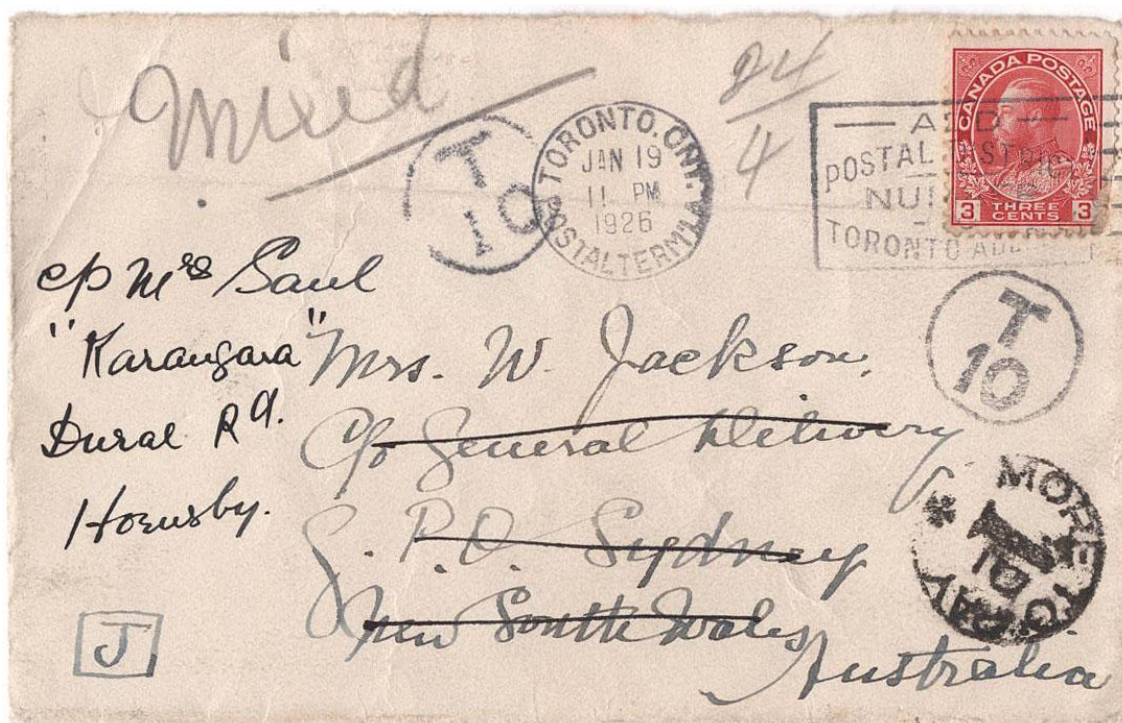 Mixed
24
4
T
10
TORONTO. ONT.
JAN 19
11 PM
1926
POSTAL TERM'L A.
POSTAL DISTRICT
TORONTO
CANADA POSTAGE
3 THREE CENTS 3
c/o Mrs Saul
"Karangara"
Dural Rd.
Hornsby.
Mrs. W. Jackson,
C/o General Delivery
G. P. O. Sydney
New South Wales
Australia
T
10
MORE TO PAY
J